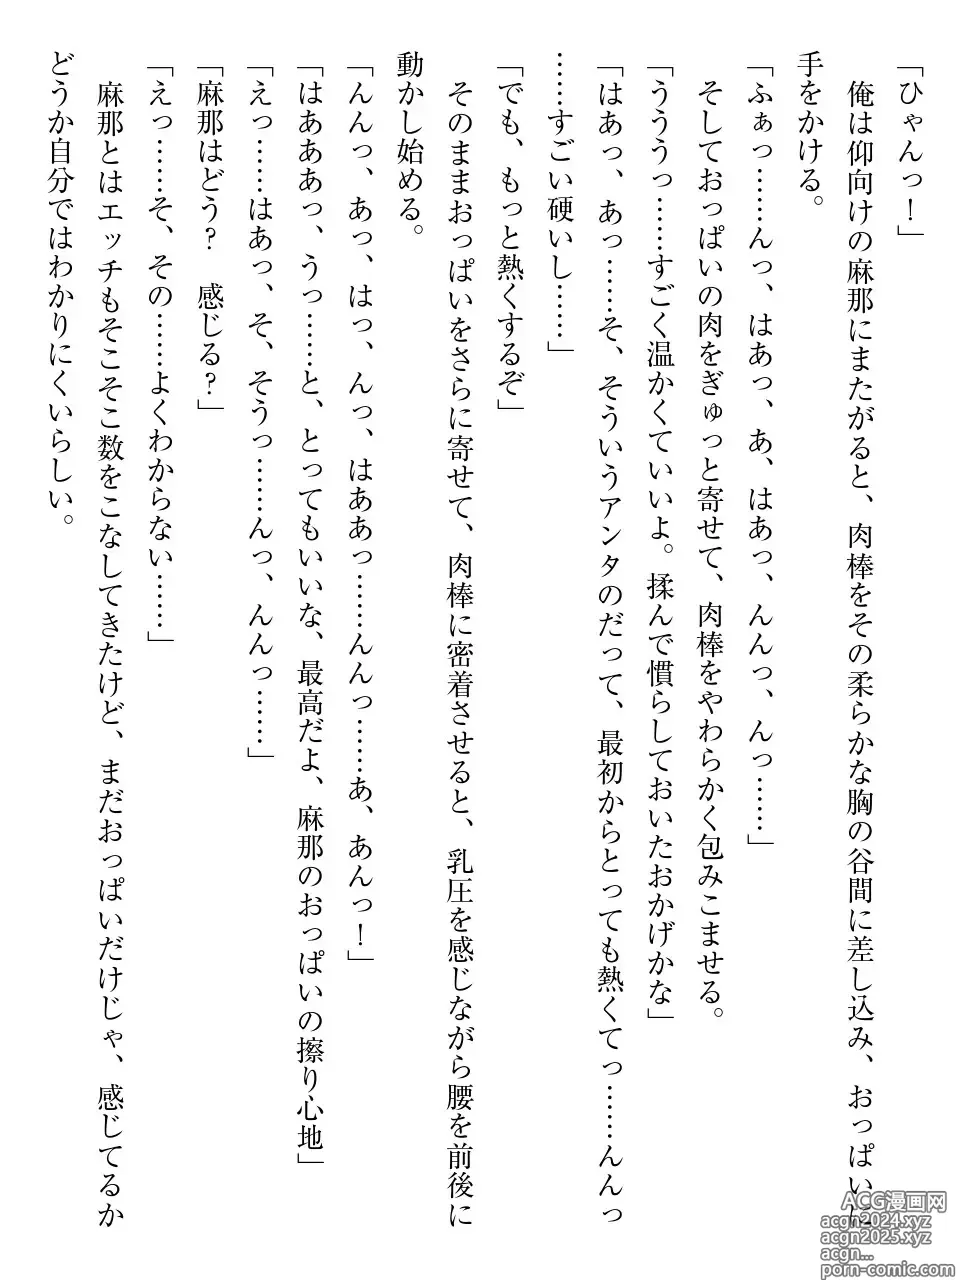 「ひゃんっ！」
　俺は仰向けの麻那にまたがると、肉棒をその柔らかな胸の谷間に差し込み、おっぱいに
手をかける。
「ふぁっ……んっ、はあっ、あ、はあっ、んんっ、んっ……」
　そしておっぱいの肉をぎゅっと寄せて、肉棒をやわらかく包みこませる。
「うううっ……すごく温かくていいよ。揉んで慣らしておいたおかげかな」
「はあっ、あっ……そ、そういうアンタのだって、最初からとっても熱くてっ……んんっ
……すごい硬いし……」
「でも、もっと熱くするぞ」
　そのままおっぱいをさらに寄せて、肉棒に密着させると、乳圧を感じながら腰を前後に
動かし始める。
「んんっ、あっ、はっ、んっ、はああっ……んんっ……あ、あんっ！」
「はあああっ、うっ……と、とってもいいな、最高だよ、麻那のおっぱいの擦り心地」
「えっ……はあっ、そ、そうっ……んっ、んんっ……」
「麻那はどう？　感じる？」
「えっ……そ、その……よくわからない……」
　麻那とはエッチもそこそこ数をこなしてきたけど、まだおっぱいだけじゃ、感じてるか
どうか自分ではわかりにくいらしい。
ACG漫画网
acgn2024.xyz
acgn2025.xyz
acgn...
porn-comic.com